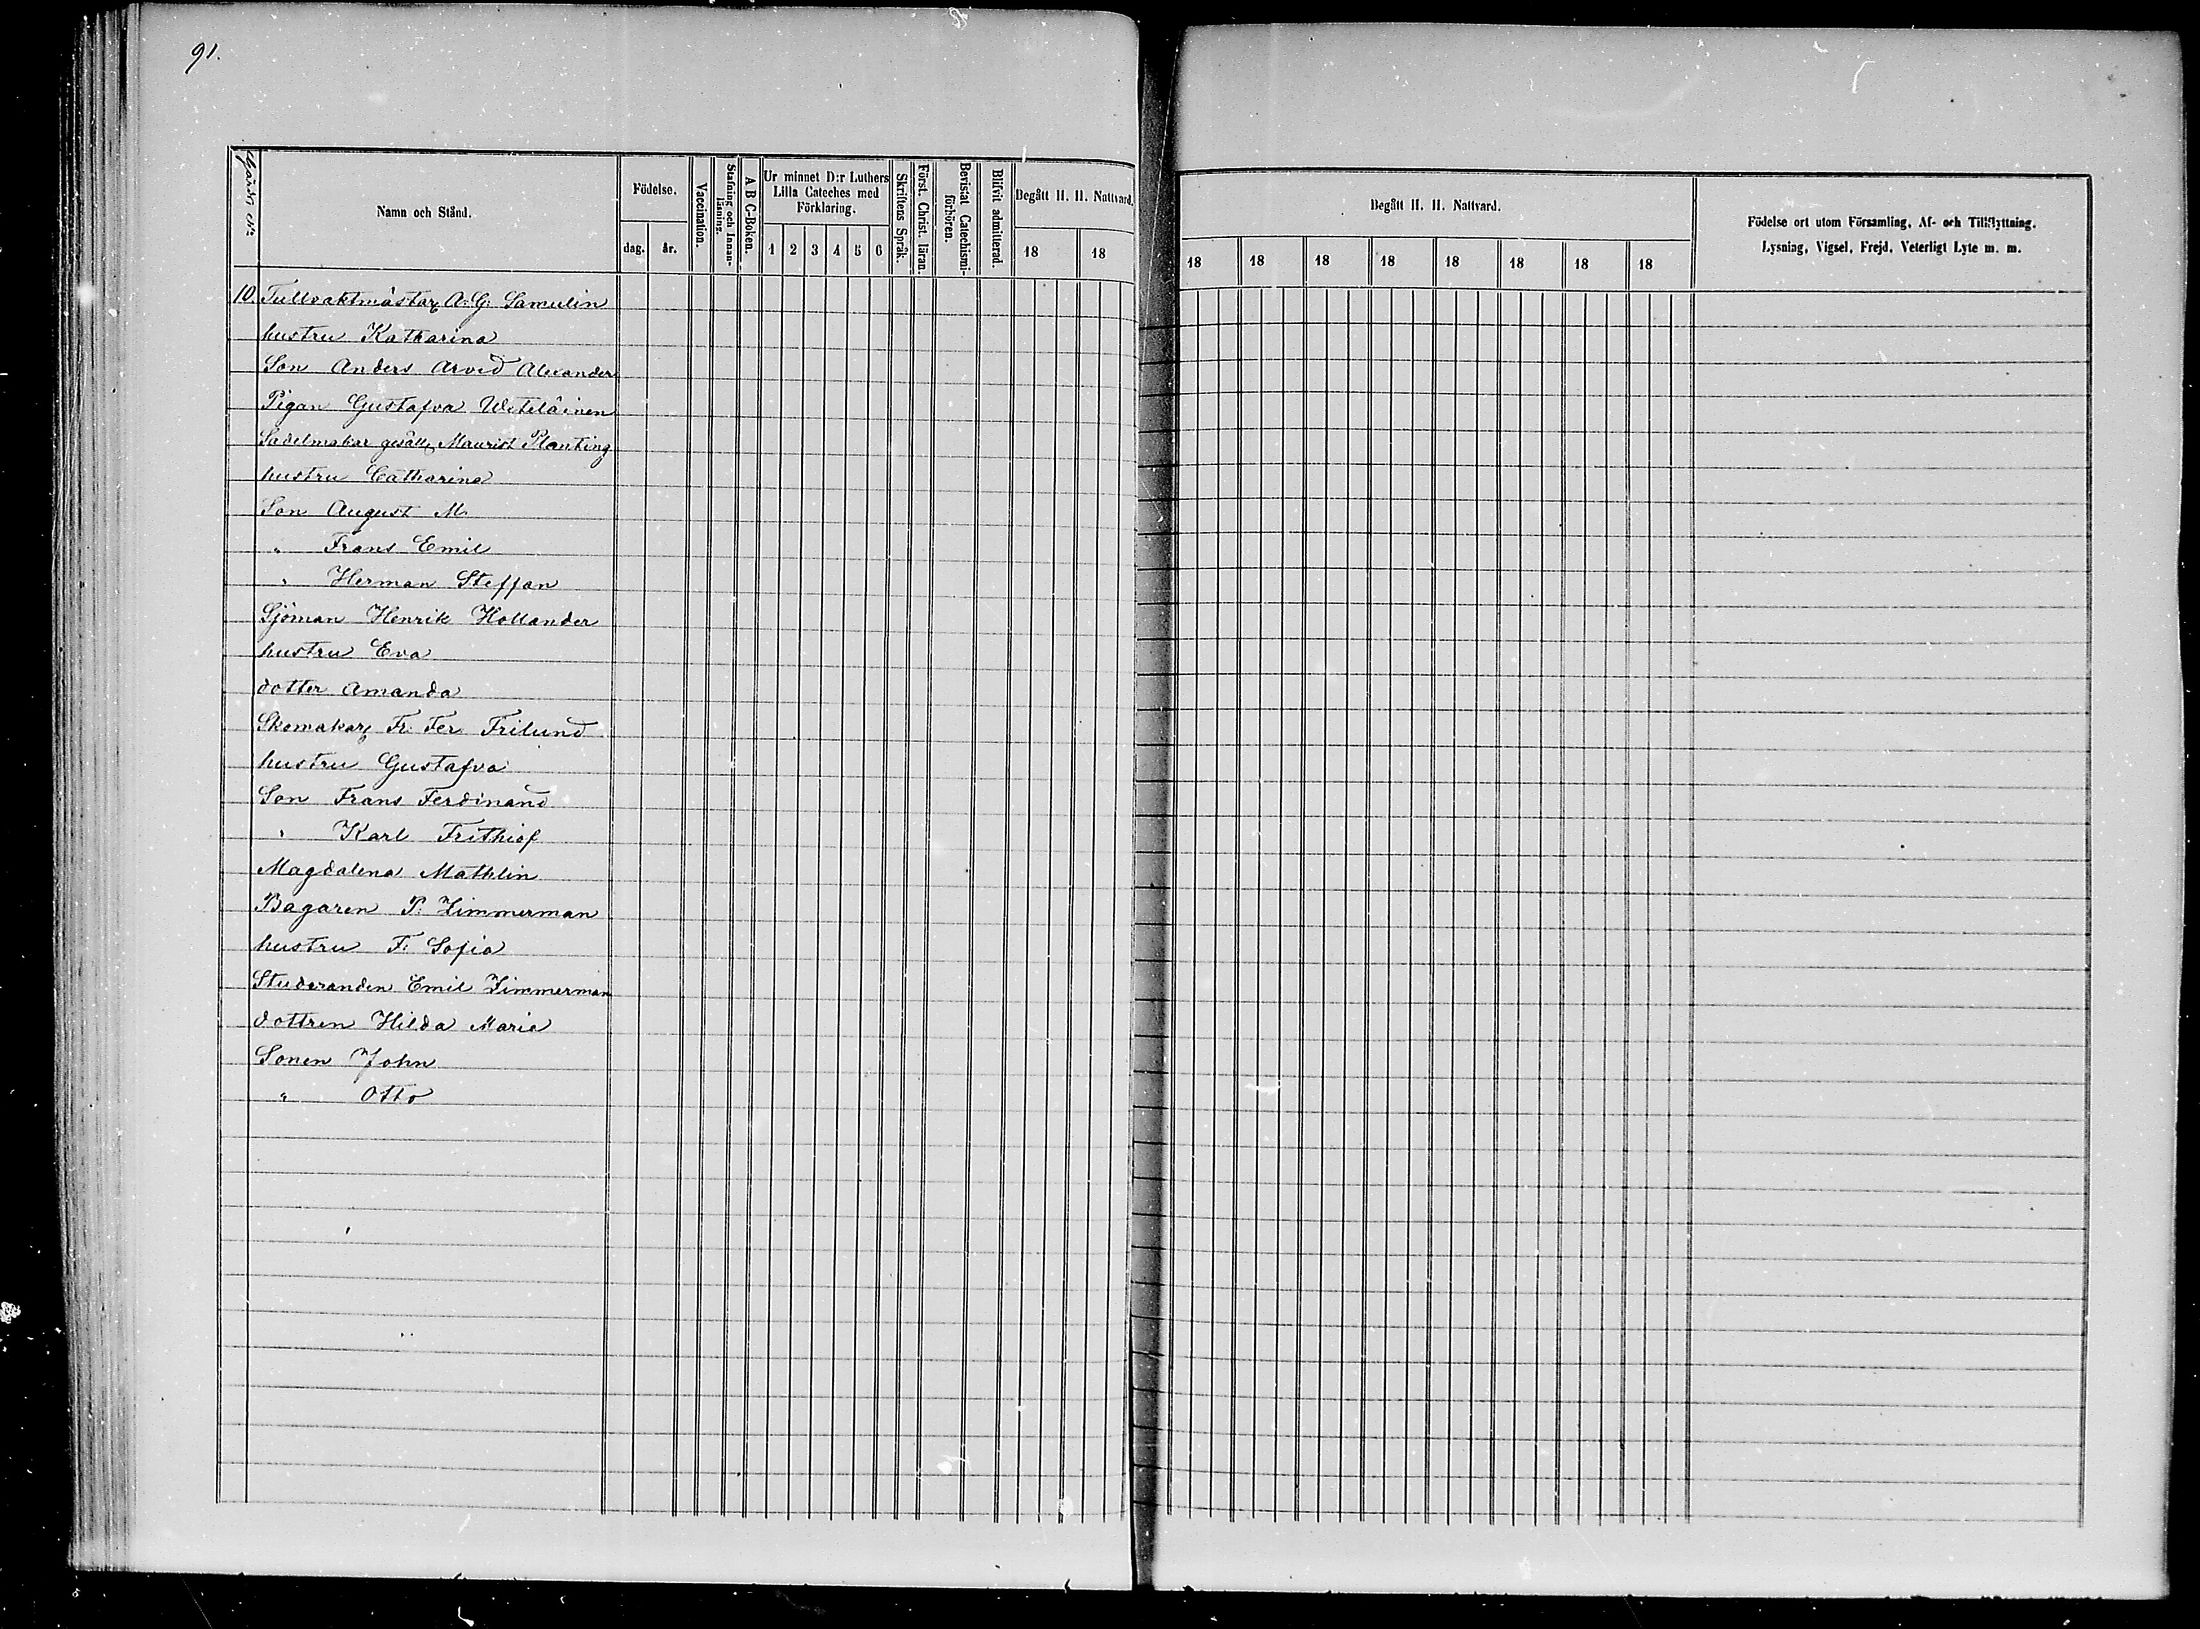 91.
Gårds No
Namn och Stånd.
Födelse.
dag.
år.
Vaccination.
Stafning och Innan-
läsning.
A B C-Boken.
Ur minnet D:r Luthers
Lilla Cateches med
Förklaring.
1 2 3 4 5 6
Skriftens Språk.
Först. Christ. läran.
Bevistat Catechismi-
förhören.
Blifvit admitterad.
Begått H. H. Nattvard.
18 18
Begått H. H. Nattvard.
18 18 18 18 18 18 18 18
Födelse ort utom Församling, Af- och Tillflyttning,
Lysning, Vigsel, Frejd, Veterligt Lyte m. m.
10. Tullvaktmästar A: G: Samulin
hustru Katharina
Son Anders Arved Alexander
Pigan Gustafva Weteläinen
Sadelmakar gesäll Maurist Planting
hustru Catharina
Son August M.
" Frans Emil
" Herman Steffan
Sjöman Henrik Hollander
hustru Eva
dotter Amanda
Skomakar Fr. Fer Frilund
hustru Gustafva
Son Frans Ferdinand
" Karl Frithiof
Magdalena Mathlin
Bagaren P. Zimmerman
hustru F: Sofia
Studeranden Emil Zimmerman
dottren Hilda Maria
Sonen John
" Otto